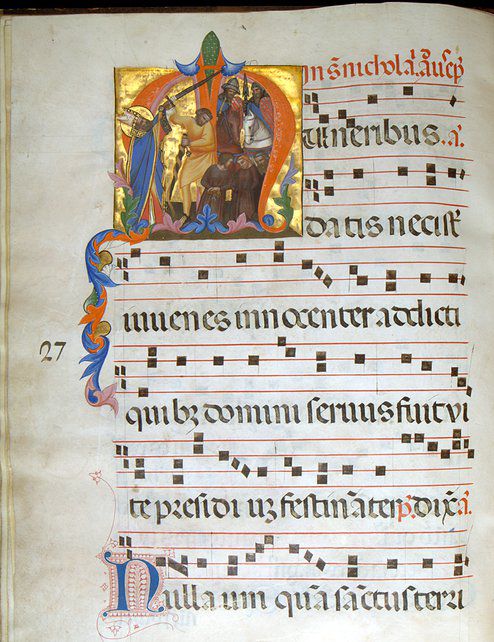 In s̄ nichola
Muneribus. a.
datis necis
iuuenes innocenter addicti
27
quibꝫ domini seruus fuit vi
te presidiuꝫ festināter p̄. dix̄ a.
Nulla um quā sāctus terri